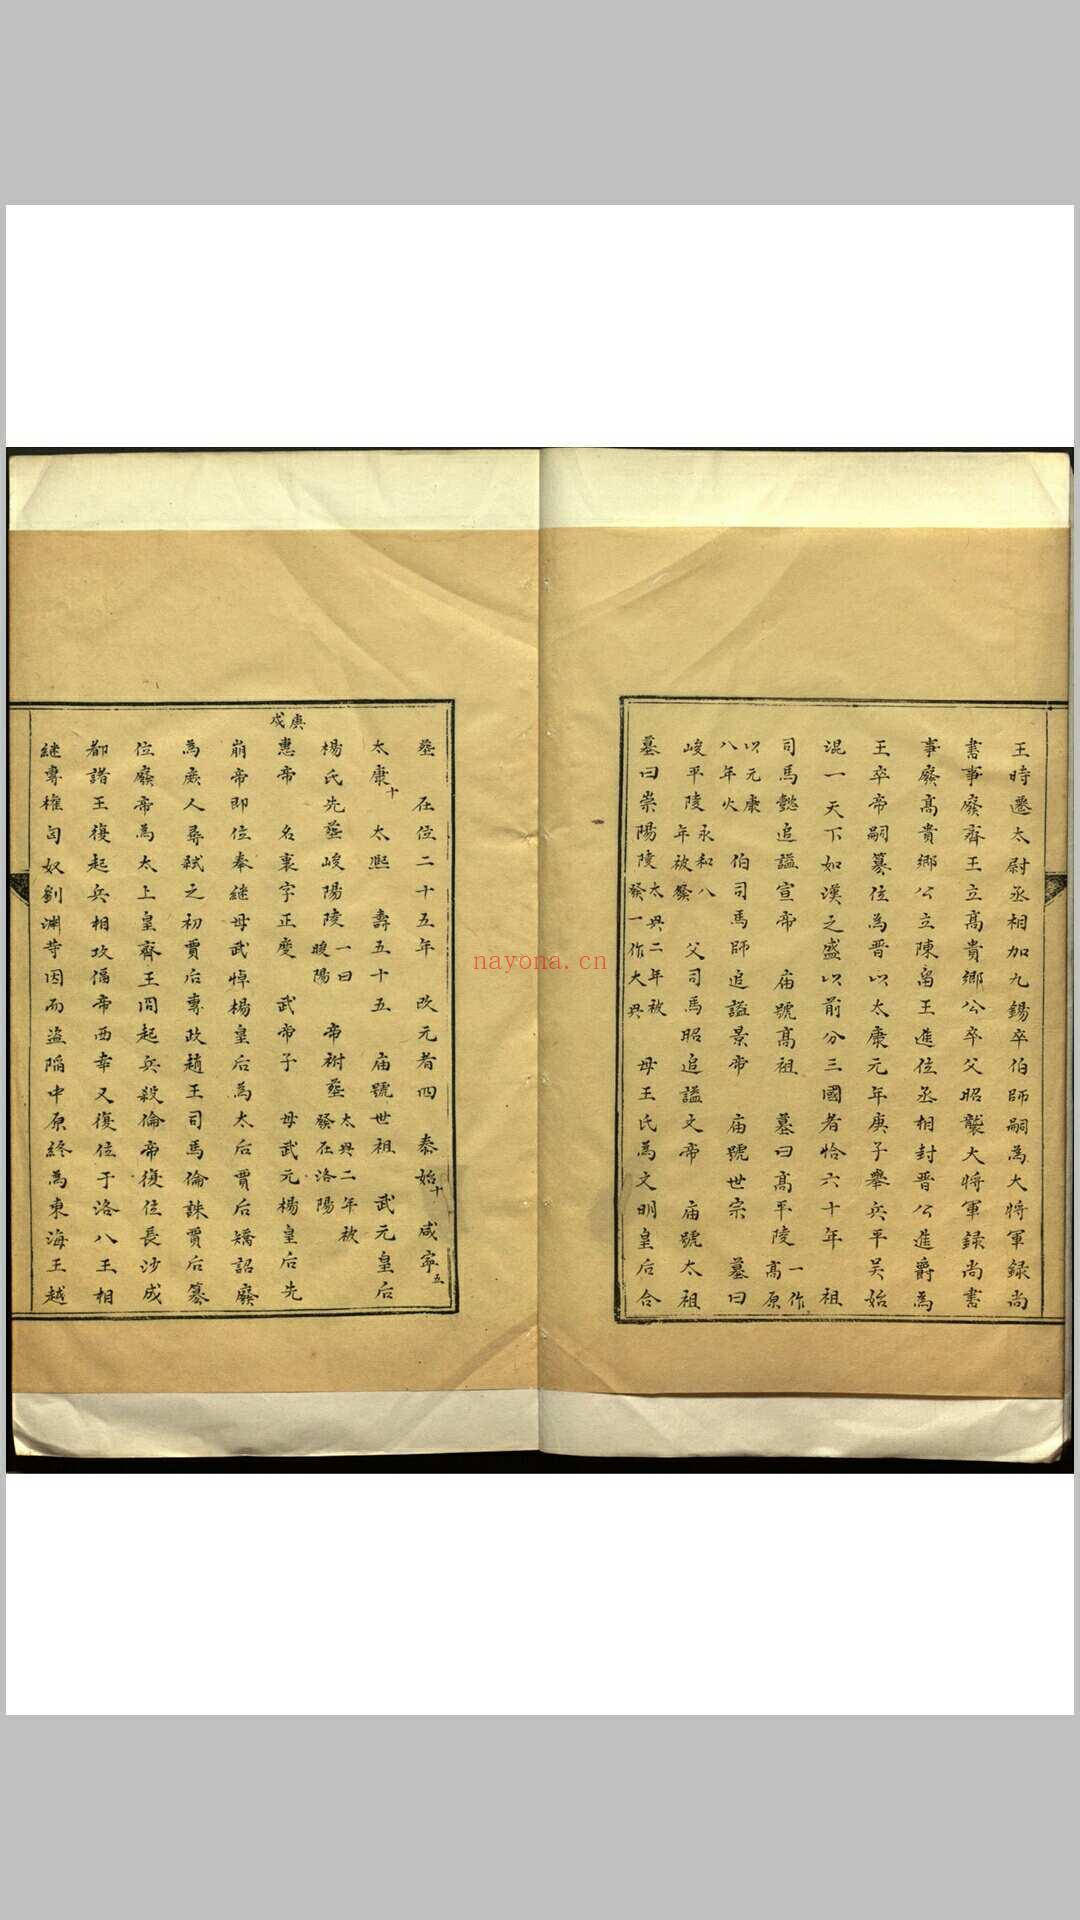 王時遷太尉丞相加九錫卒伯師嗣為大將軍録尚
書事廢齊王立高貴鄉公卒父昭襲大將軍録尚書
事廢高貴鄉公立陳畱王進位丞相封晋公進爵為
王卒帝嗣篡位為晋以太康元年庚子舉兵平吴始
混一天下如漢之盛以前分三國者恰六十年 祖
司馬懿追謚宣帝 庙號高祖 墓曰高平陵一作高原
以元康八年火 伯司馬師追謚景帝 庙號世宗 墓曰
峻平陵永和八年被發 父司馬昭追謚文帝 庙號太祖
墓曰崇陽陵太興二年被發一作大興 母王氏為文明皇后合
塟 在位二十五年 改元者四 泰始十 咸寧五
太康十 太熙 壽五十五 庙號世祖 武元皇后
楊氏先塟峻陽陵一曰畯陽 帝祔塟太興二年被發在洛陽
庚戌
惠帝 名衷字正度 武帝子 母武元楊皇后先
崩帝即位奉継母武悼楊皇后為太后賈后矯詔廢
為庻人尋弑之初賈后專政趙王司馬倫誅賈后篡
位廢帝為太上皇齊王冏起兵殺倫帝復位長沙成
都諸王復起兵相攻偪帝西幸又復位于洛八王相
継專權匈奴劉渊等因而盗陷中原終為東海王越
nayona.cn